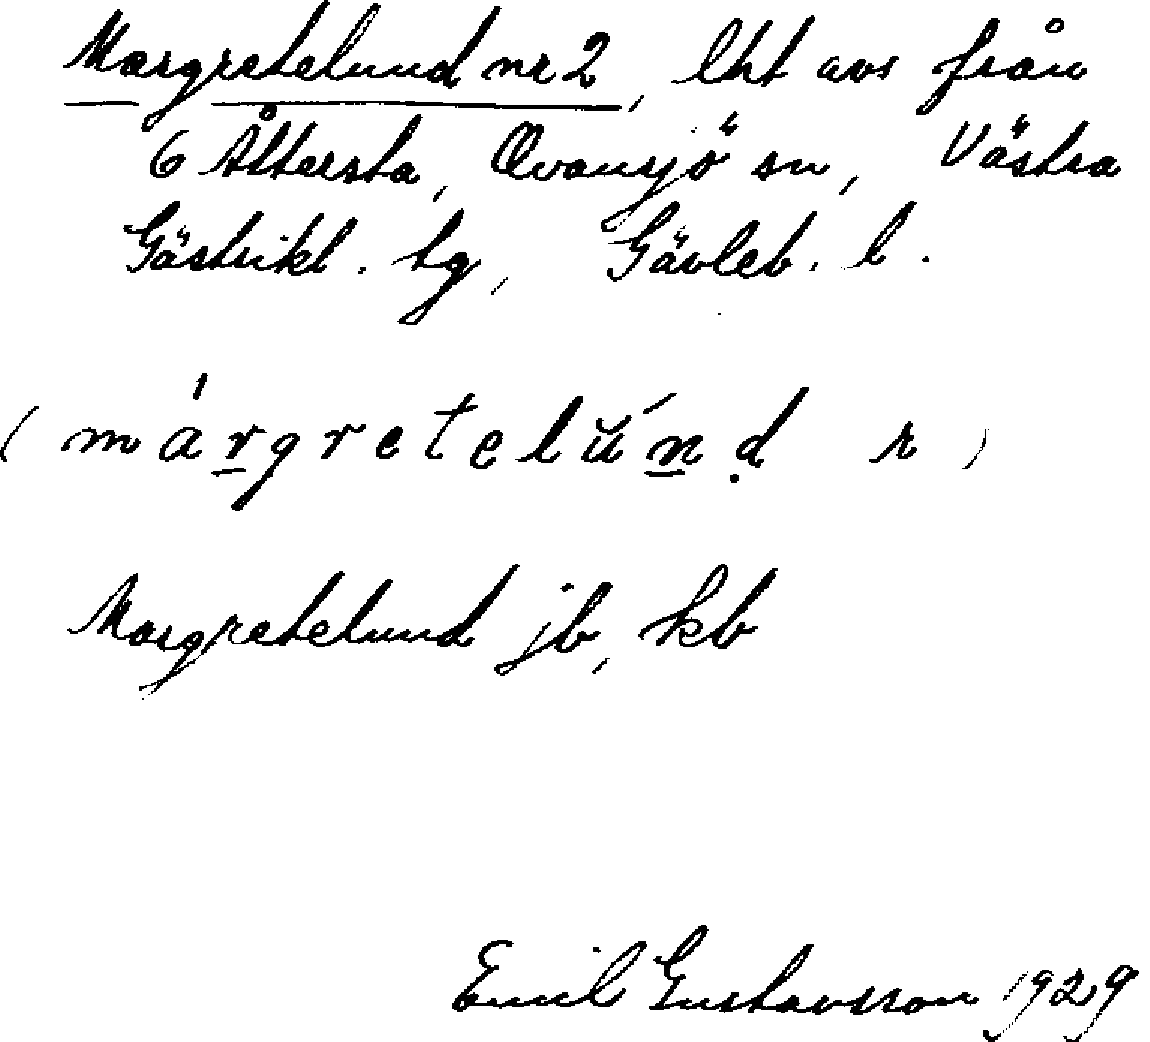 Margretelund nr 2, lht avs från
6 Åttersta, Ovansjö sn, Västra
Gästrikl. tg, Gävleb. l.
(márgretelŭ́nd r)
Margretelund jb, kb
Emil Gustavsson 1929